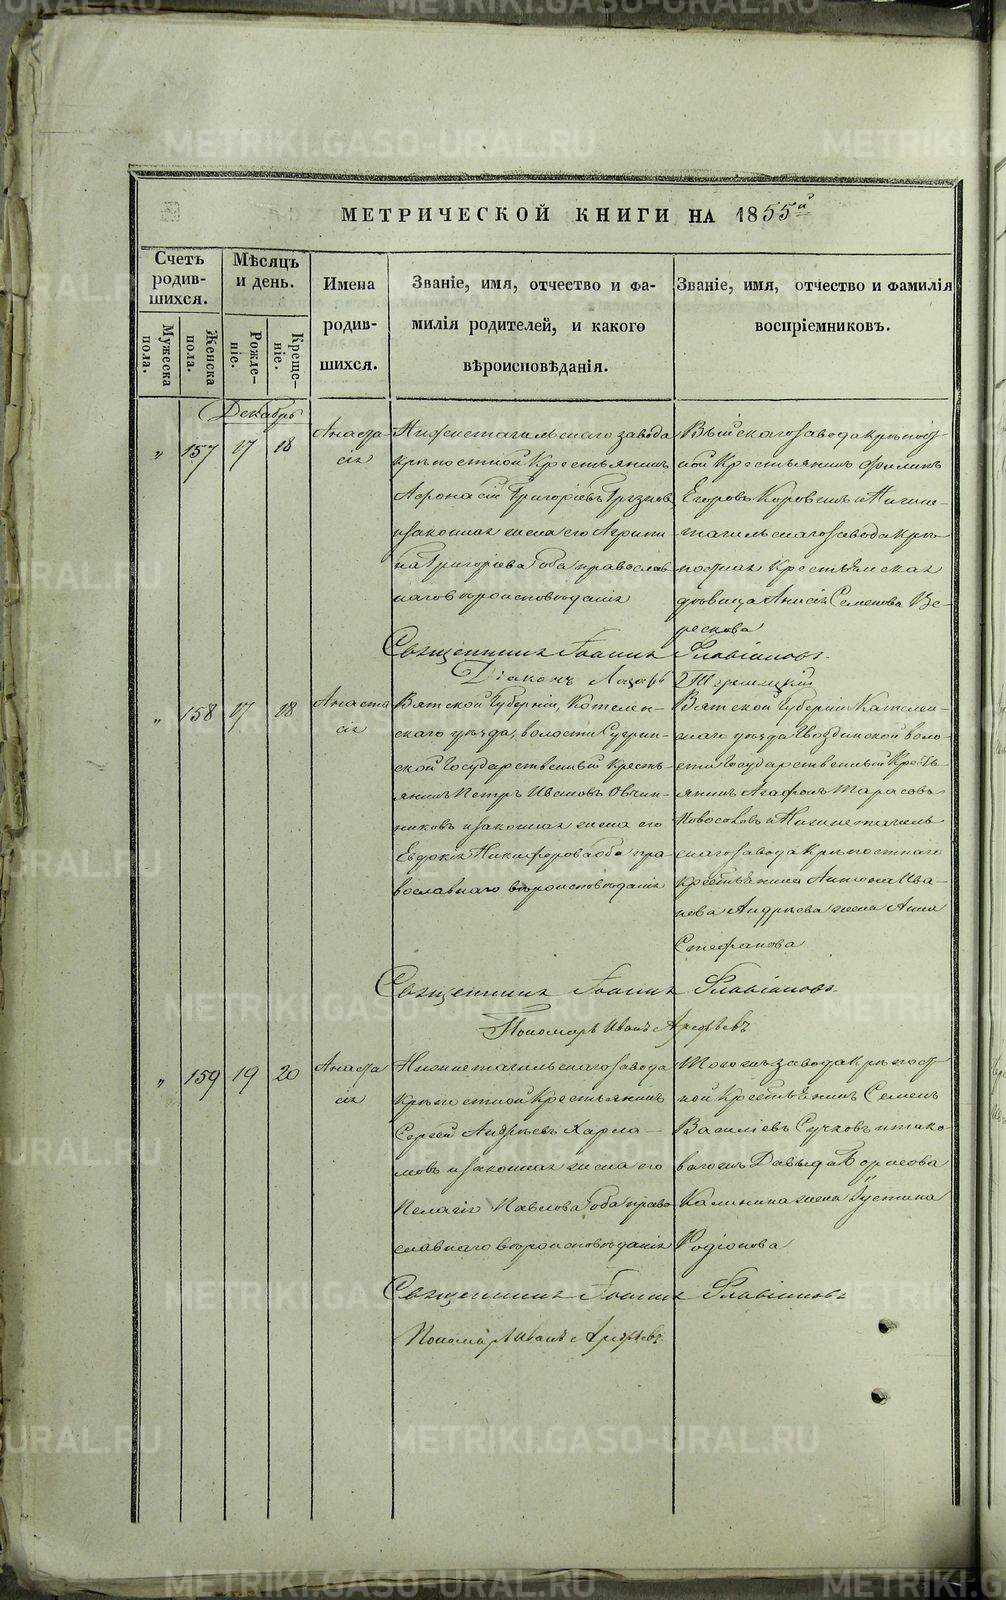 METRIKI.GASO-URAL.RU
МЕТРИЧЕСКОЙ КНИГИ НА 1855й
Счетъ родив-шихся.
Мѣсяцъ и день.
Мужеска пола.
Женска пола.
Рожде-ніе.
Креще-ніе.
Имена родив-шихся.
Званіе, имя, отчество и фа-
милія родителей, и какого
вѣроисповѣданія.
Званіе, имя, отчество и фамилія
воспріемниковъ.
Декабрь
„ 157 17 18
Анаста-
сія
Нижнетагильскаго завода
крѣпостной Крестьянинъ
Афонасій Григорьевъ
и законная жена его Агрипи-
на Григорьева оба православ
наго вѣроисповѣданія
Выйскаго завода крѣпост
ной Крестьянинъ Филипъ
Егоровъ Коровинъ и Нижне-
тагильскаго завода крѣ-
постная Крестьянская
дѣвица Анисія Семенова Ве-
рескова
Священникъ Іоаннъ Флавіановъ.
Діаконъ Лазарь
„ 158 17 18
Анаста
сія
Вятской Губерніи, Котельн-
скаго уѣзда, волости
ской Государственный кресть-
янинъ Петръ Ивановъ Овчин-
никовъ и законная жена его
Евдокія Никифорова оба пра-
вославнаго вѣроисповѣданія
Вятской Губерніи Котельн-
скаго уѣзда Гвоздинской воло-
сти Государственный Кресть-
янинъ Агафонъ Тарасовъ
Новоселовъ и Нижнетагиль
скаго завода крѣпостнаго
крестьянина Антона Ива-
нова Андрѣева жена Анна
Стефанова
Священникъ Іоаннъ Флавіановъ.
Пономарь Иванъ Арефьевъ
„ 159 19 20
Анаста
сія
Нижнетагильскаго завода
крѣпостной Крестьянинъ
Сергѣй Андрѣевъ Харла-
мовъ и законная жена его
Пелагія Павлова оба право
славнаго вѣроисповѣданія
Того же завода крѣпост
ной Крестьянинъ Семенъ
Василіевъ Сучковъ и тако
ваго же Давыда Борисова
Калинина жена Іустина
Родіонова
Священникъ Іоаннъ Флавіановъ
Пономарь Иванъ Арефьевъ